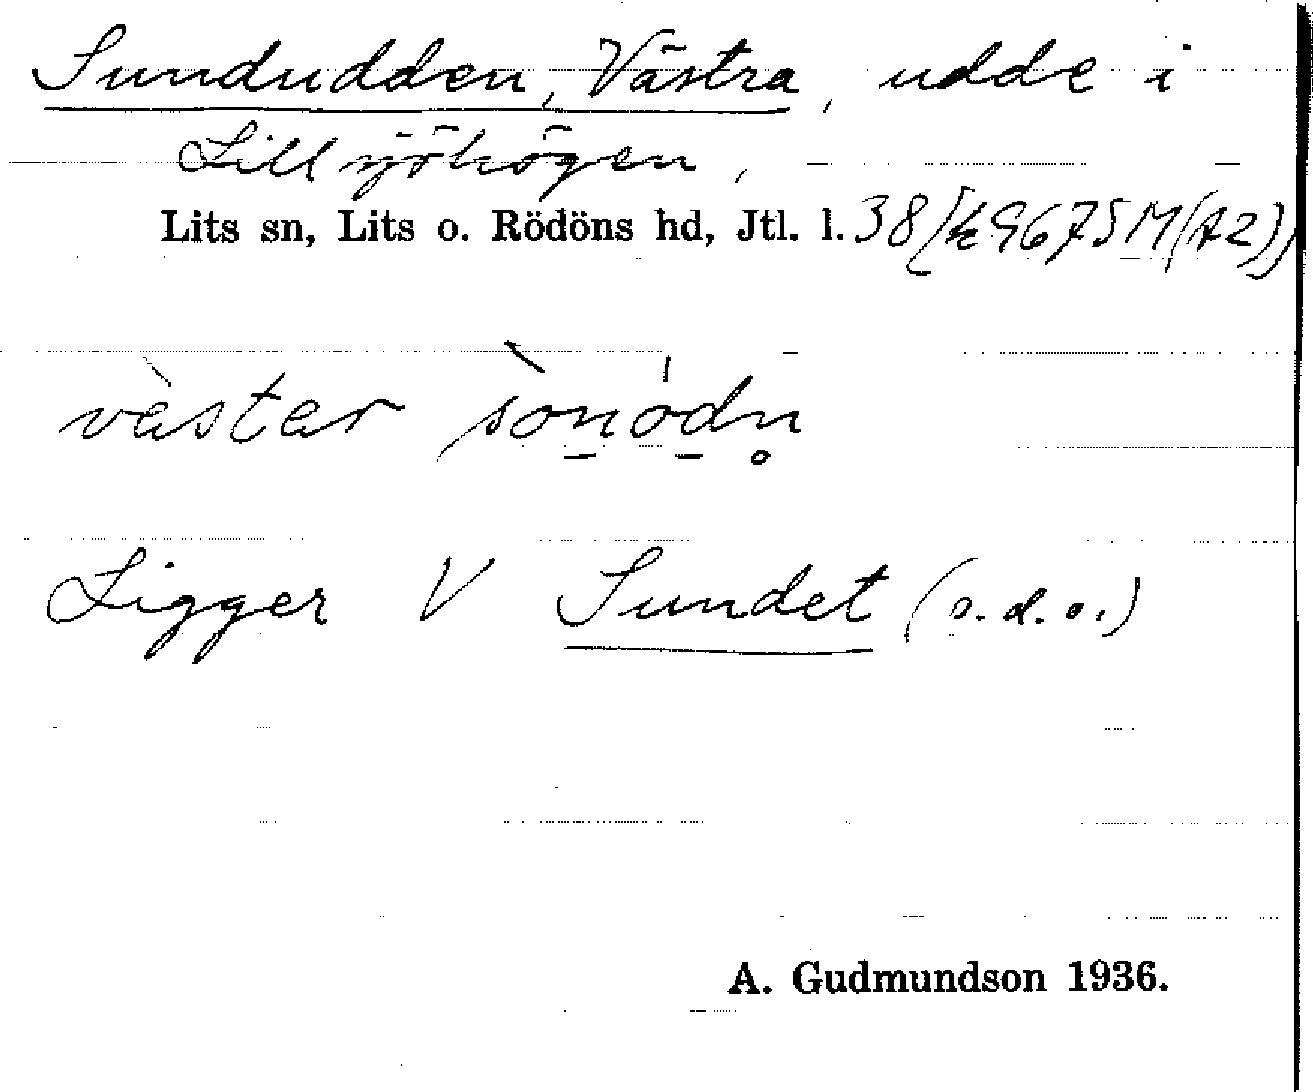 Sundudden, Västra, udde i
Lillsjöhögen,
Lits sn, Lits o. Rödöns hd, Jtl. l. 38 (k 9675 M(A2))
vàstar sònódn̥
Ligger V Sundet (s.d.o.)
A. Gudmundson 1936.